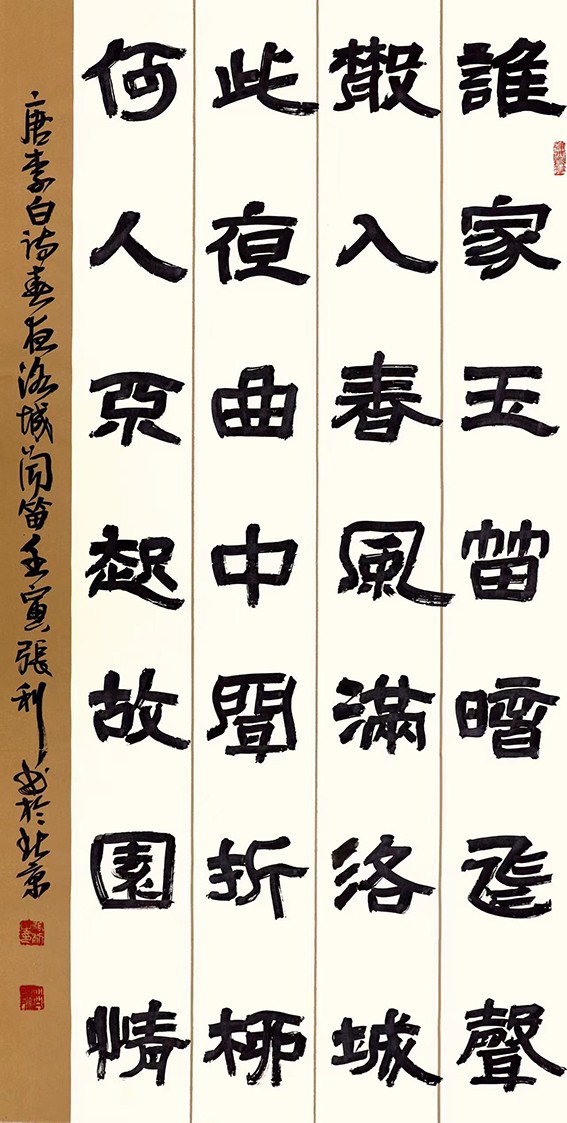 誰家玉笛暗飛聲
散入春風滿洛城
此夜曲中聞折柳
何人不起故園情
唐李白詩春夜洛城聞笛壬寅張利書於北京